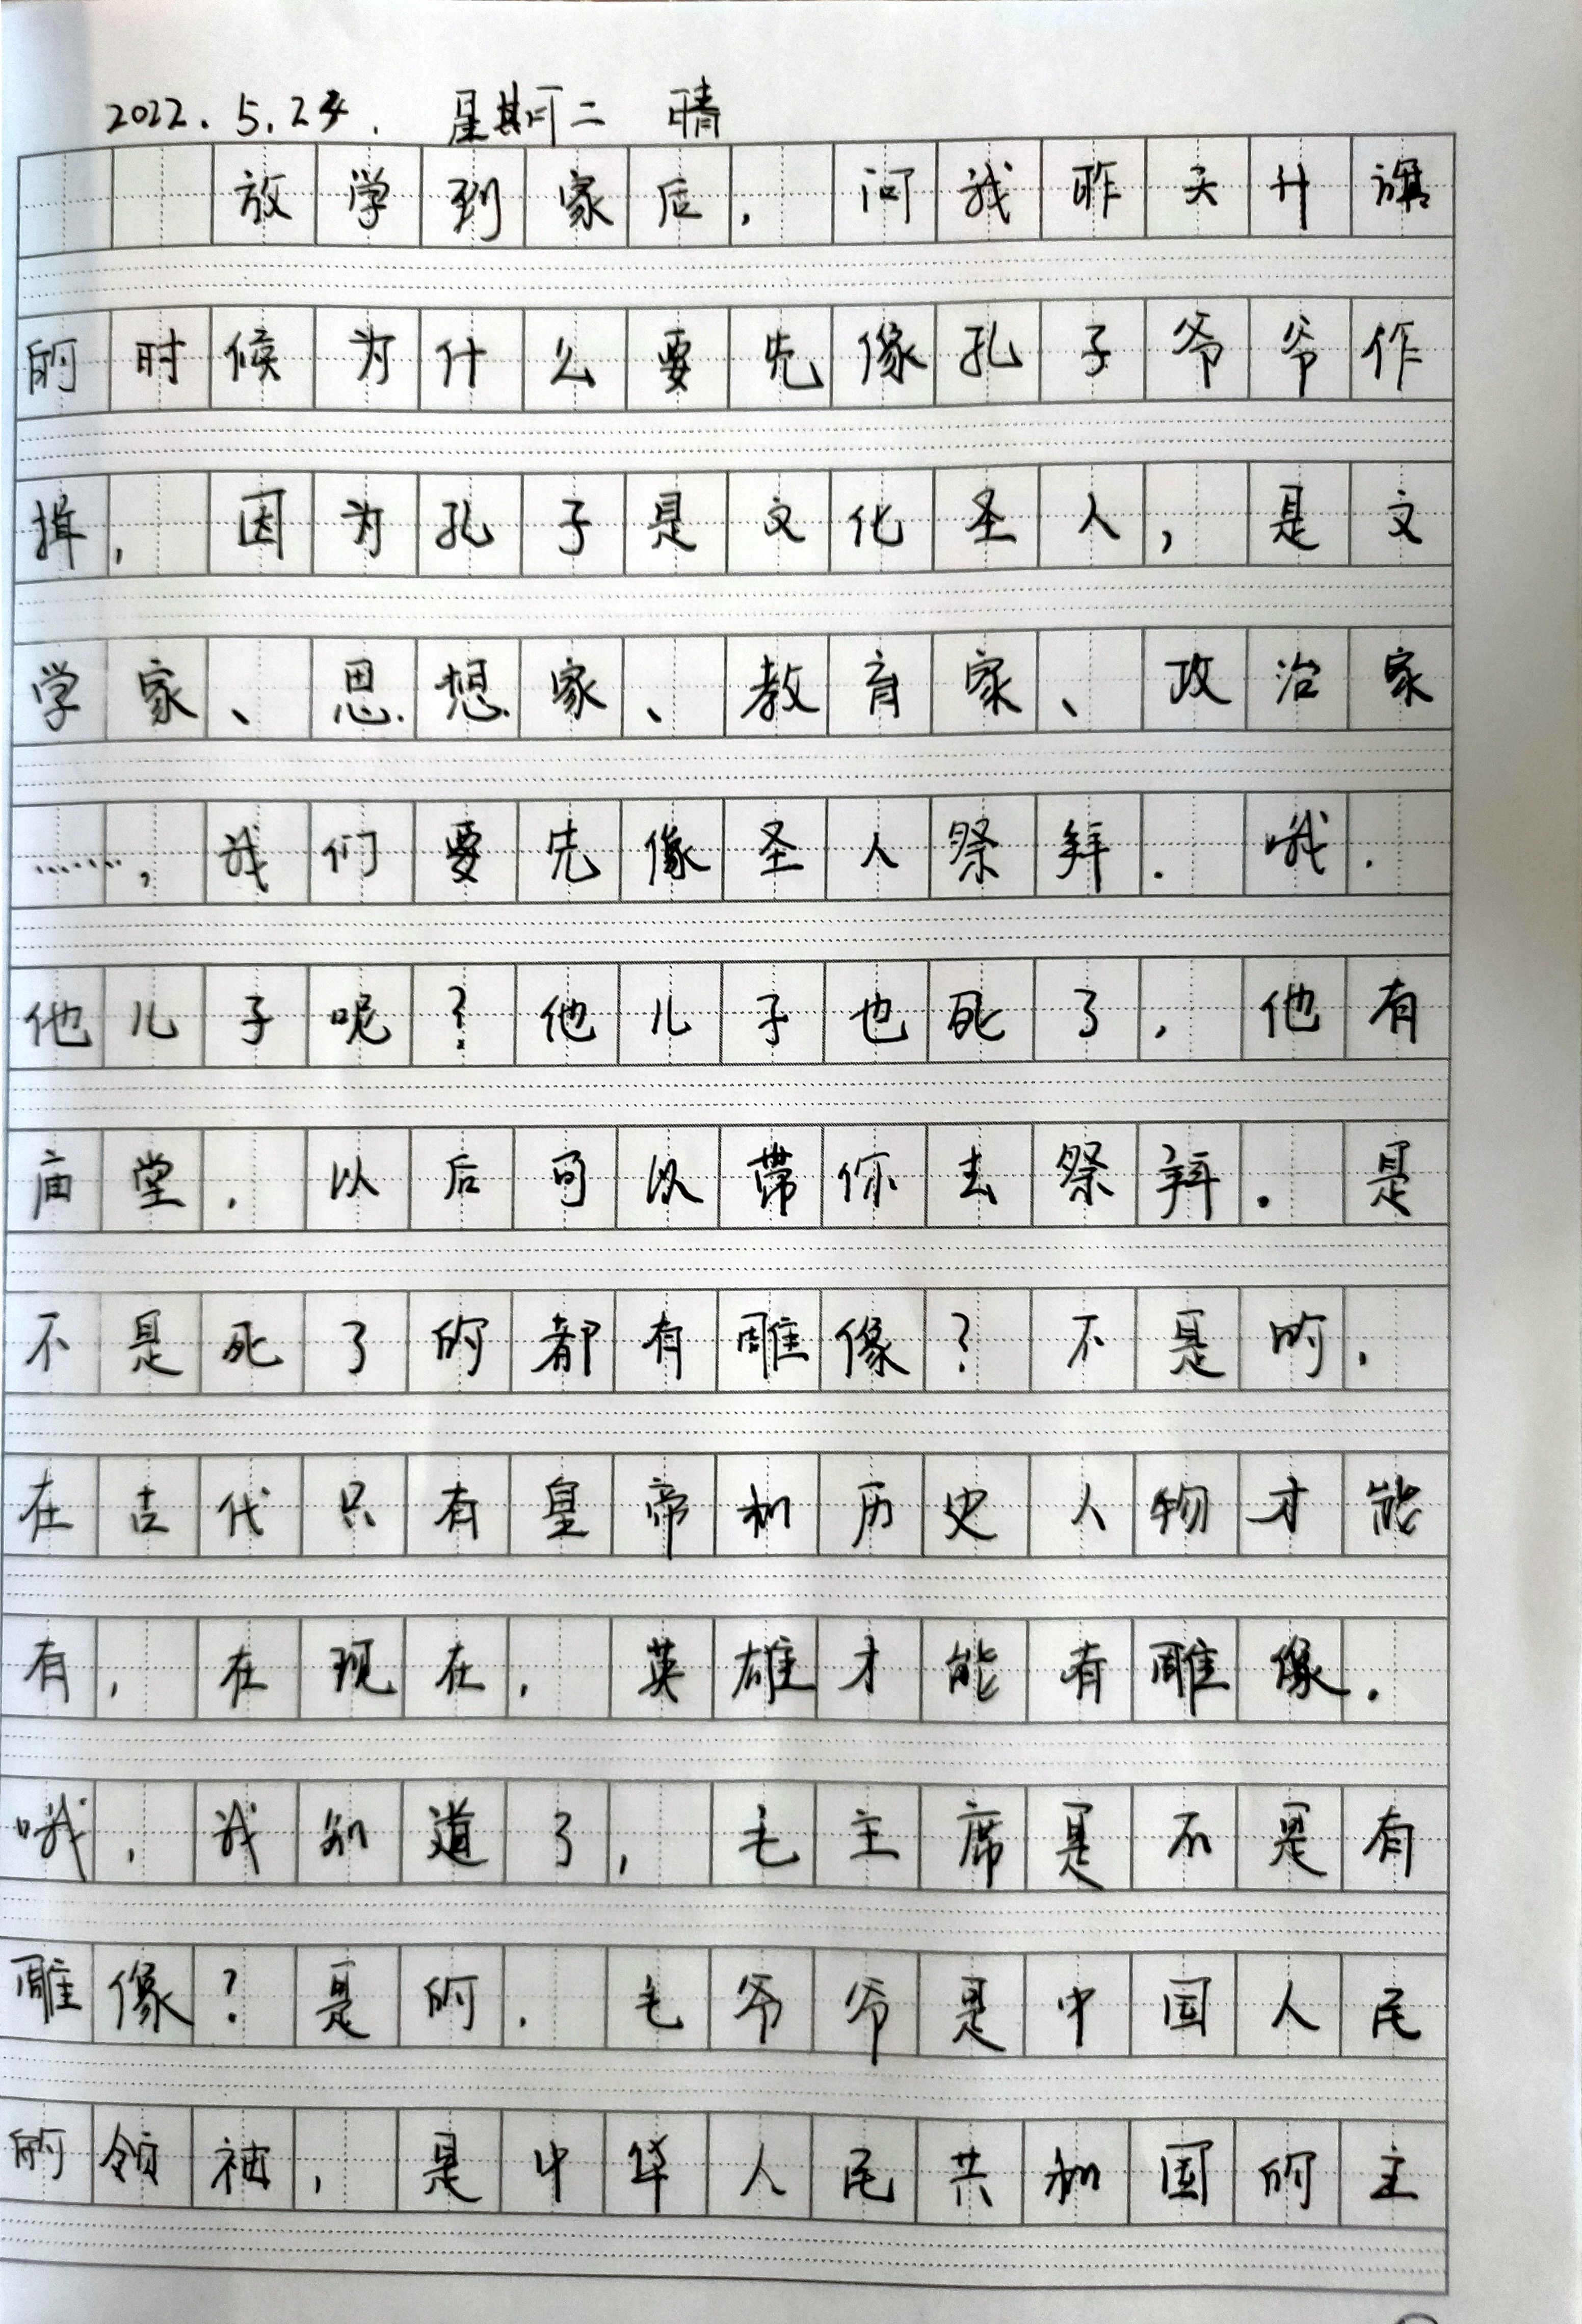 2022.5.24. 星期二 晴
放学到家后，问我昨天升旗
的时候为什么要先像孔子爷爷作
揖，因为孔子是文化圣人，是文
学家、思想家、教育家、政治家
……，我们要先像圣人祭拜.哦.
他儿子呢?他儿子也死了，他有
庙堂，以后可以带你去祭拜.是
不是死了的都有雕像?不是的，
在古代只有皇帝和历史人物才能
有，在现在，英雄才能有雕像.
哦，我知道了，毛主席是不是有
雕像?是的，毛爷爷是中国人民
的领袖，是中华人民共和国的主